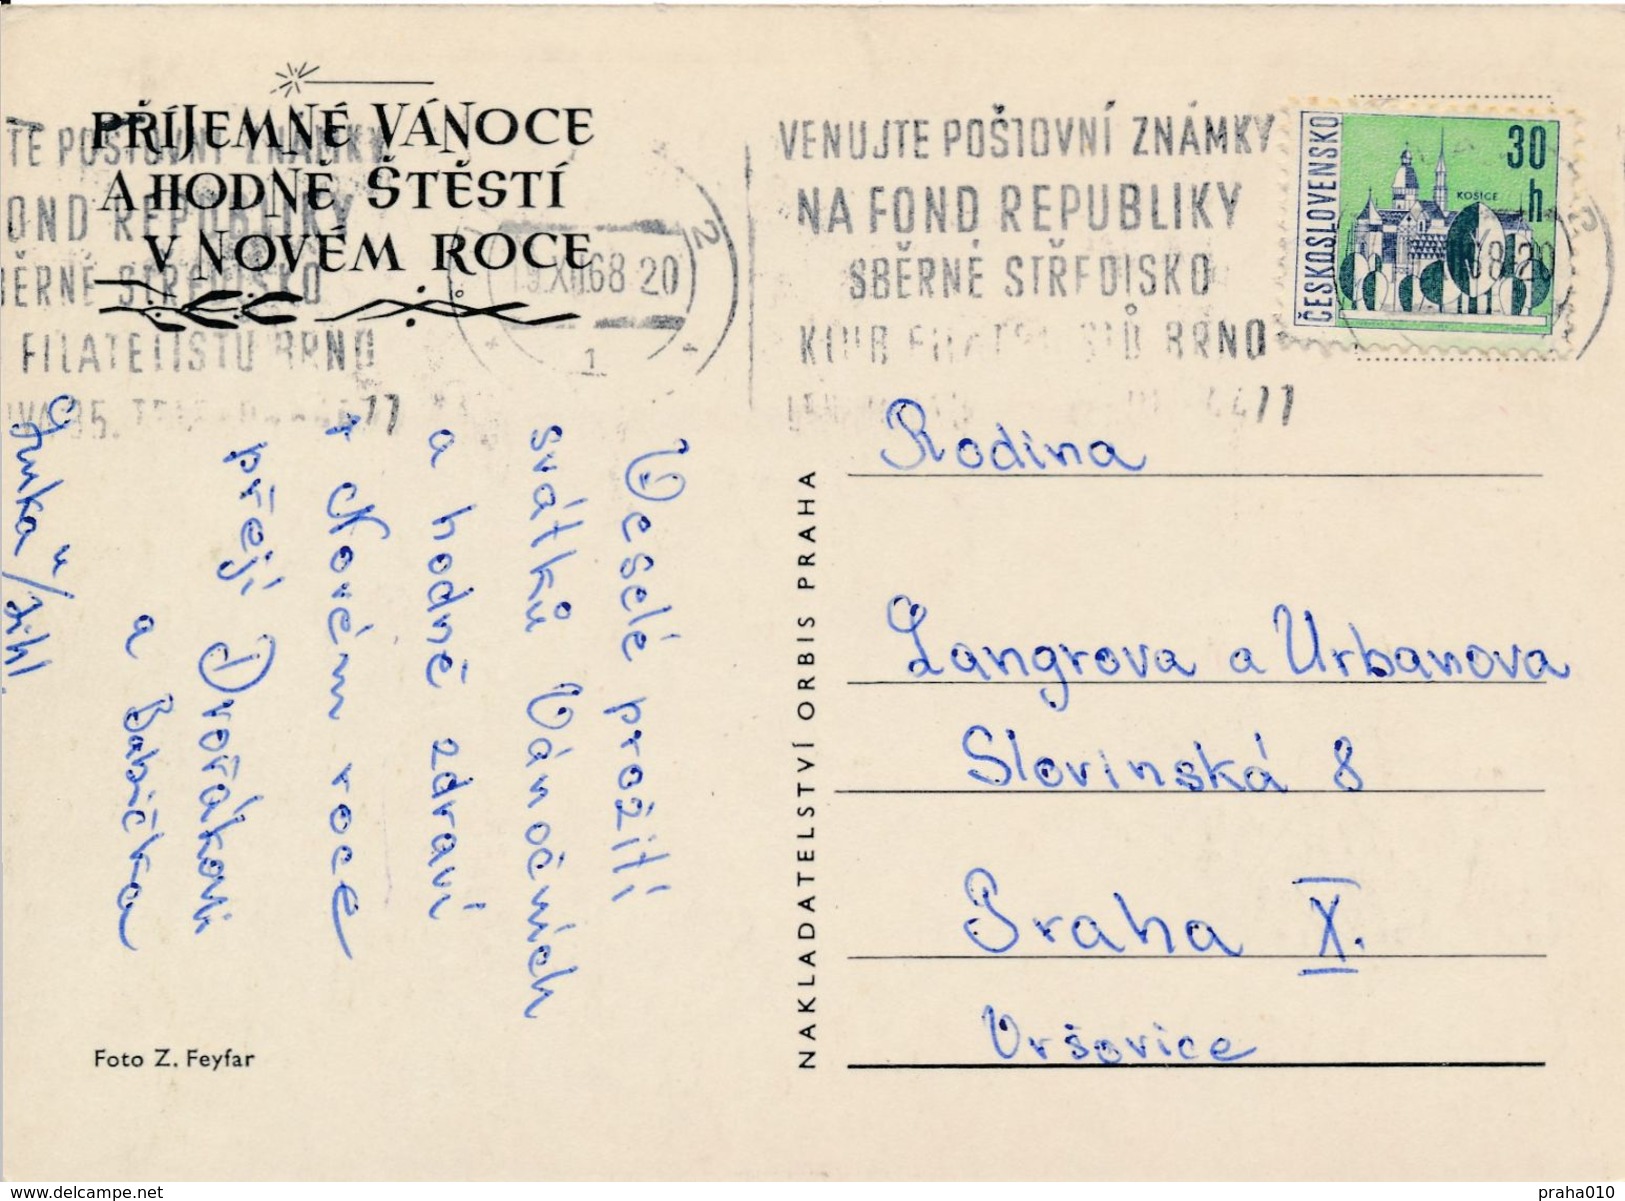 PŘÍJEMNÉ VÁNOCE
A HODNĚ ŠTĚSTÍ
V NOVÉM ROCE
TE POŠTOVNÍ ZNÁMKY
OND REPUBLIKY
BĚRNÉ STŘEDISKO
FILATELISTŮ BRNO
35.
77
19.XII.68 20
2
1
VĚNUJTE POŠTOVNÍ ZNÁMKY
NA FOND REPUBLIKY
SBĚRNÉ STŘEDISKO
KLUB FILATELISTŮ BRNO
4477
ČESKOSLOVENSKO
30
h
KOŠICE
68-20
Veselé prožití
svátků Vánočních
a hodně zdraví
v Novém roce
přejí Dvořákovi
a Babička
Foto Z. Feyfar
NAKLADATELSTVÍ ORBIS PRAHA
Rodina
Langrova a Urbanova
Slovinská 8
Praha X.
Vršovice
www.delcampe.net
praha010